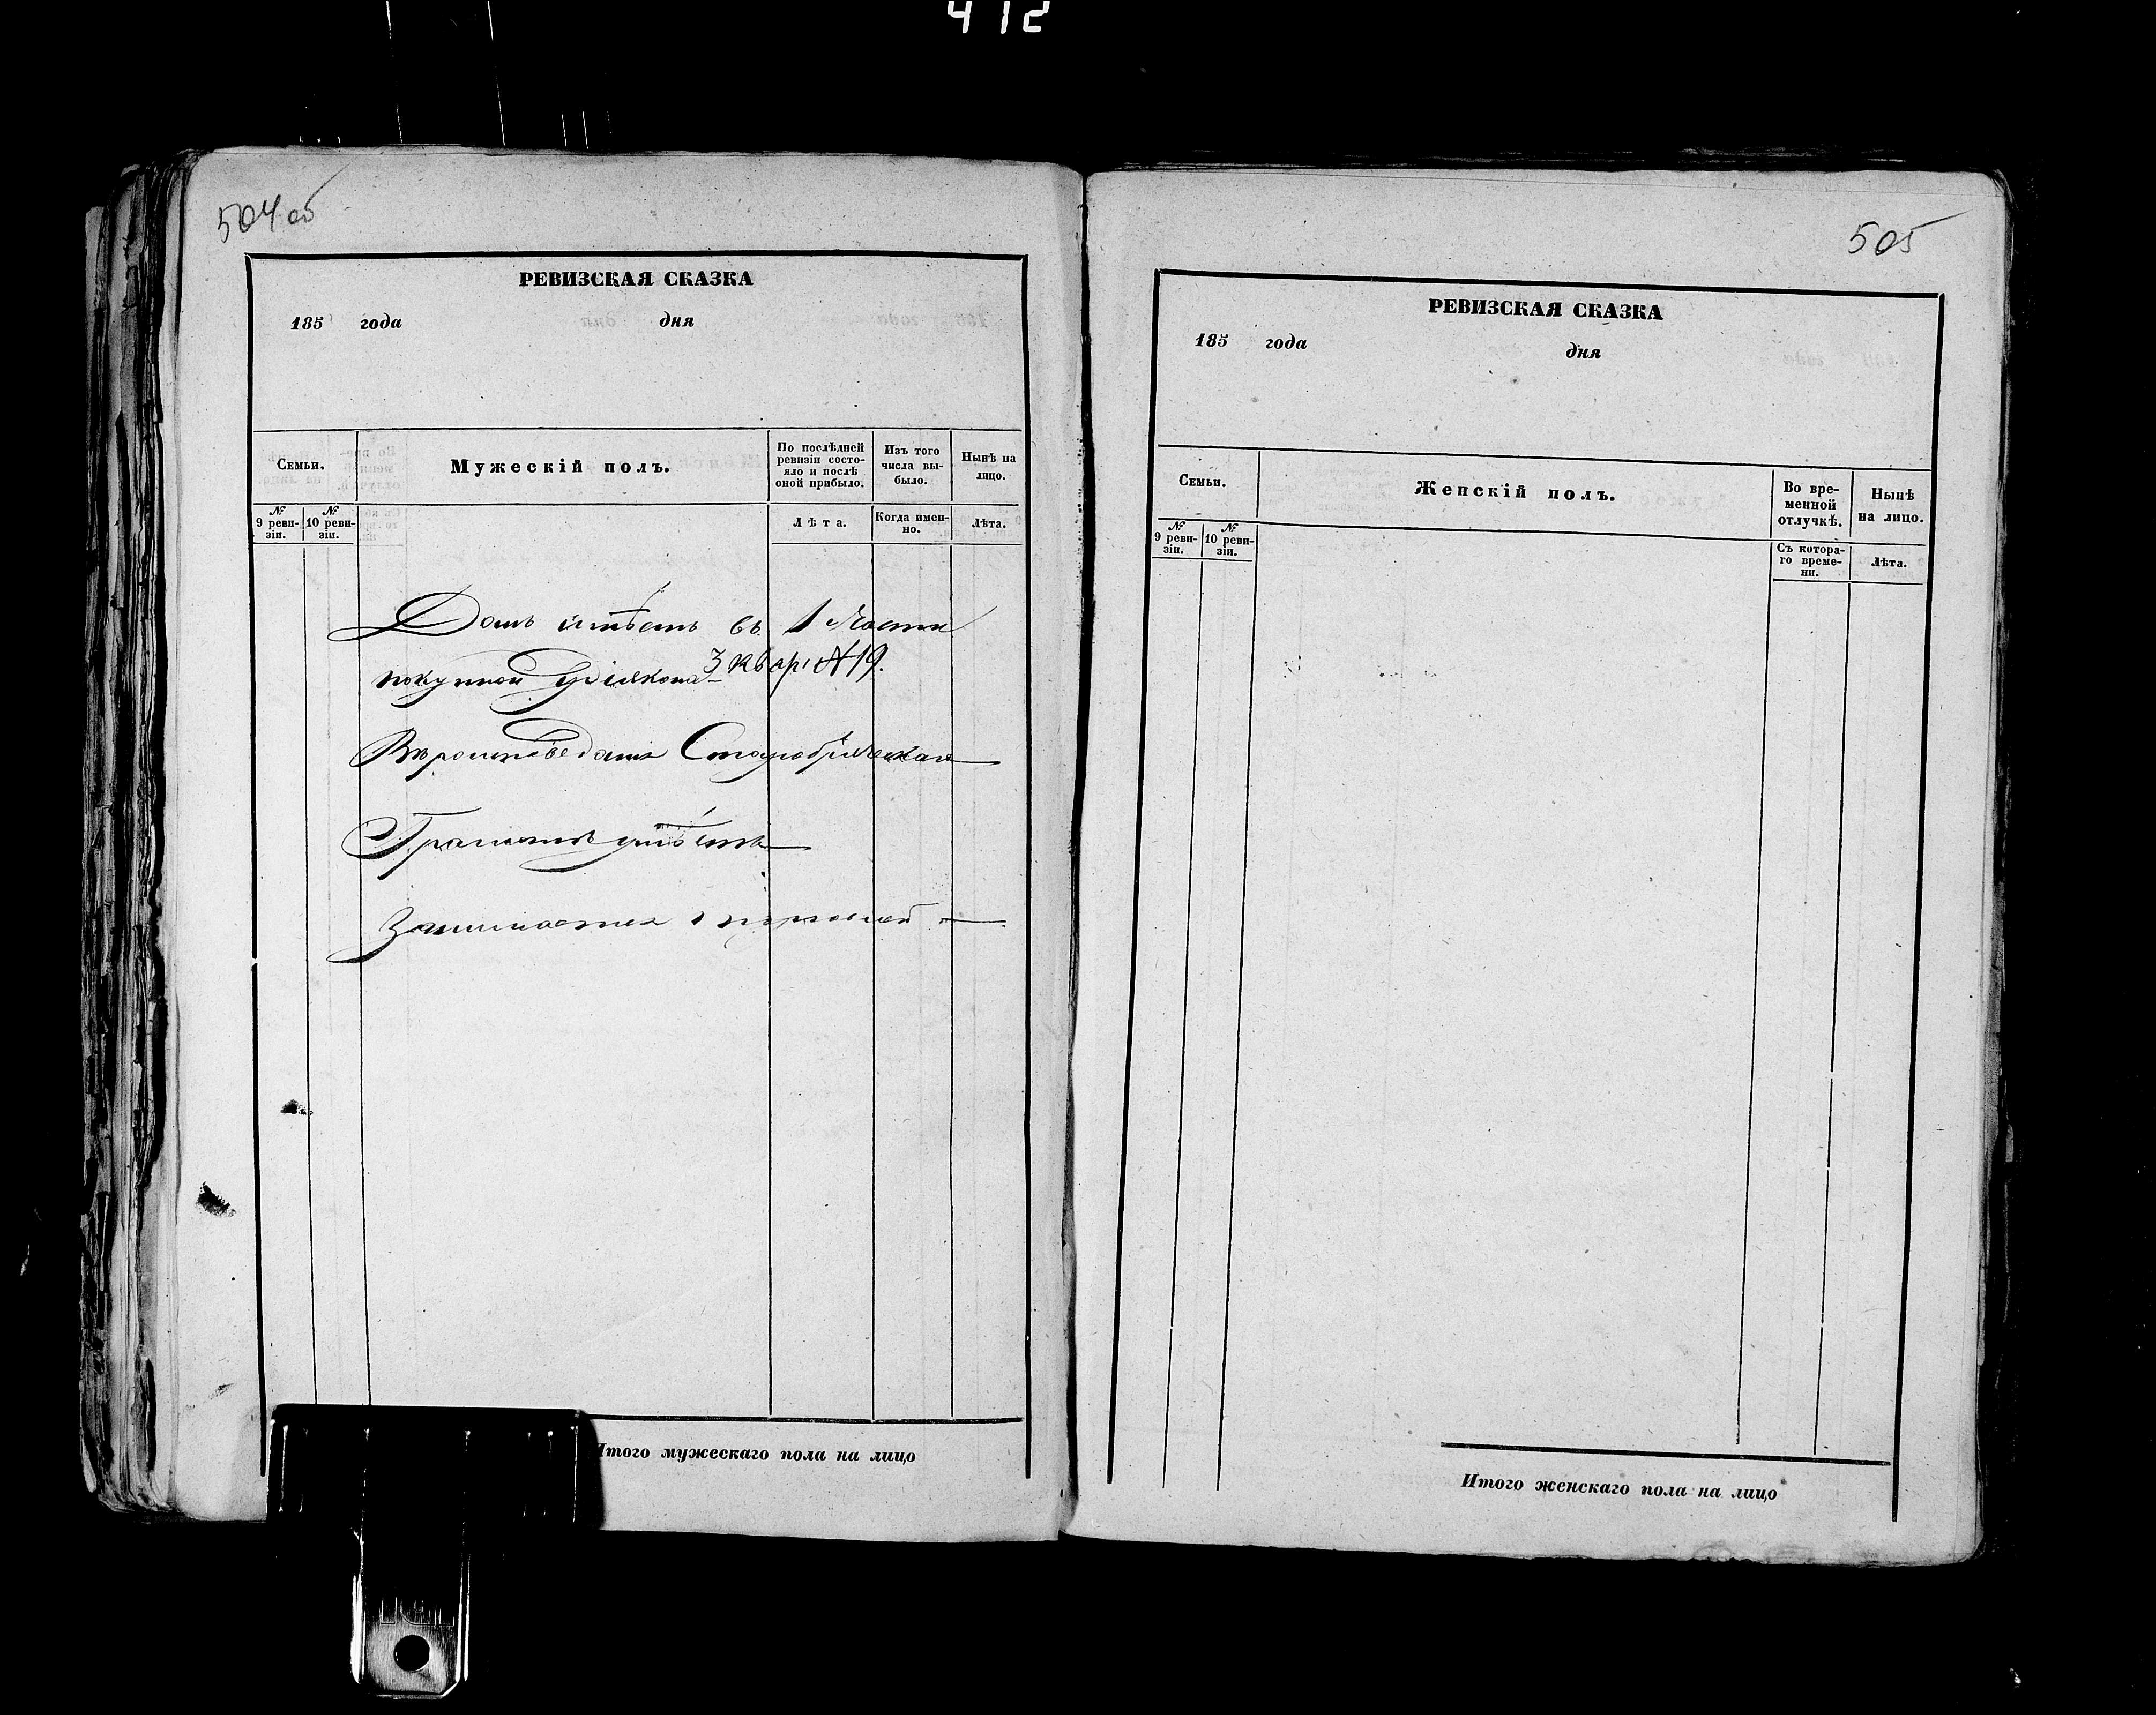 412
504об
РЕВИЗСКАЯ СКАЗКА
185 года дня
Семьи.
Мужескій полъ.
По послѣдней ревизіи состо-
яло и послѣ оной прибыло.
Изъ того числа вы-
было.
Нынѣ на лицо.
№ 9 реви-
зіи.
№ 10 реви-
зіи.
Лѣта.
Когда имен-
но.
Лѣта.
Домъ имѣетъ въ 1 части
3 квар: №19.
покупной
Вѣроисповеданія Старобрядческаго
Грамотѣ умѣетъ
Занимается торговлей
Итого мужескаго пола на лицо
505
РЕВИЗСКАЯ СКАЗКА
185 года дня
Семьи.
Женскій полъ.
Во вре-
менной
отлучкѣ.
Нынѣ
на лицо.
№ 9 реви-
зіи.
№ 10 реви-
зіи.
Съ котора-
го време-
ни.
Лѣта.
Итого женскаго пола на лицо